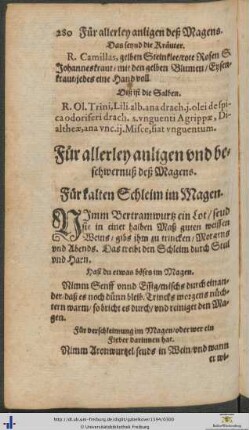 280 Für allerley anligen deß Magens.
Das seynd die Kräuter.
R. Camillas, gelben Steinklee, rote Rosen S.
Johanneskraut, mit den gelben Blumen, Eysen-
kraut, jedes eine Hand voll.
Diß ist die Salben.
R. Ol. Trini, Lili. alb. ana drach. j. olei de spi-
ca odoriferi drach. s. vnguenti Agrippæ, Di-
altheæ, ana vnc. ij. Misce, fiat vnguentum.
Für allerley anligen vnd be-
schwernuß deß Magens.
Für kalten Schleim im Magen.
NImm Bertramwurtz ein Lot, seud
sie in einer halben Maß guten weissen
Weins, gibs ihm zu trincken, Morgens
vnd Abends. Das treibt den Schleim durch Stul
vnd Harn.
Hast du etwas böses im Magen.
Nimm Senff vnnd Essig, mischs durch einan-
der, daß es noch dünn bleib, Trincks morgens nüch-
tern warm, so bricht es durch, vnd reiniget den Ma-
gen.
Für verschleimung im Magen, oder wer ein
Fieber darinnen hat.
Nimm Aronwurtzel seuds in Wein, vnd wann
er wi-
© Universitätsbibliothek Freiburg